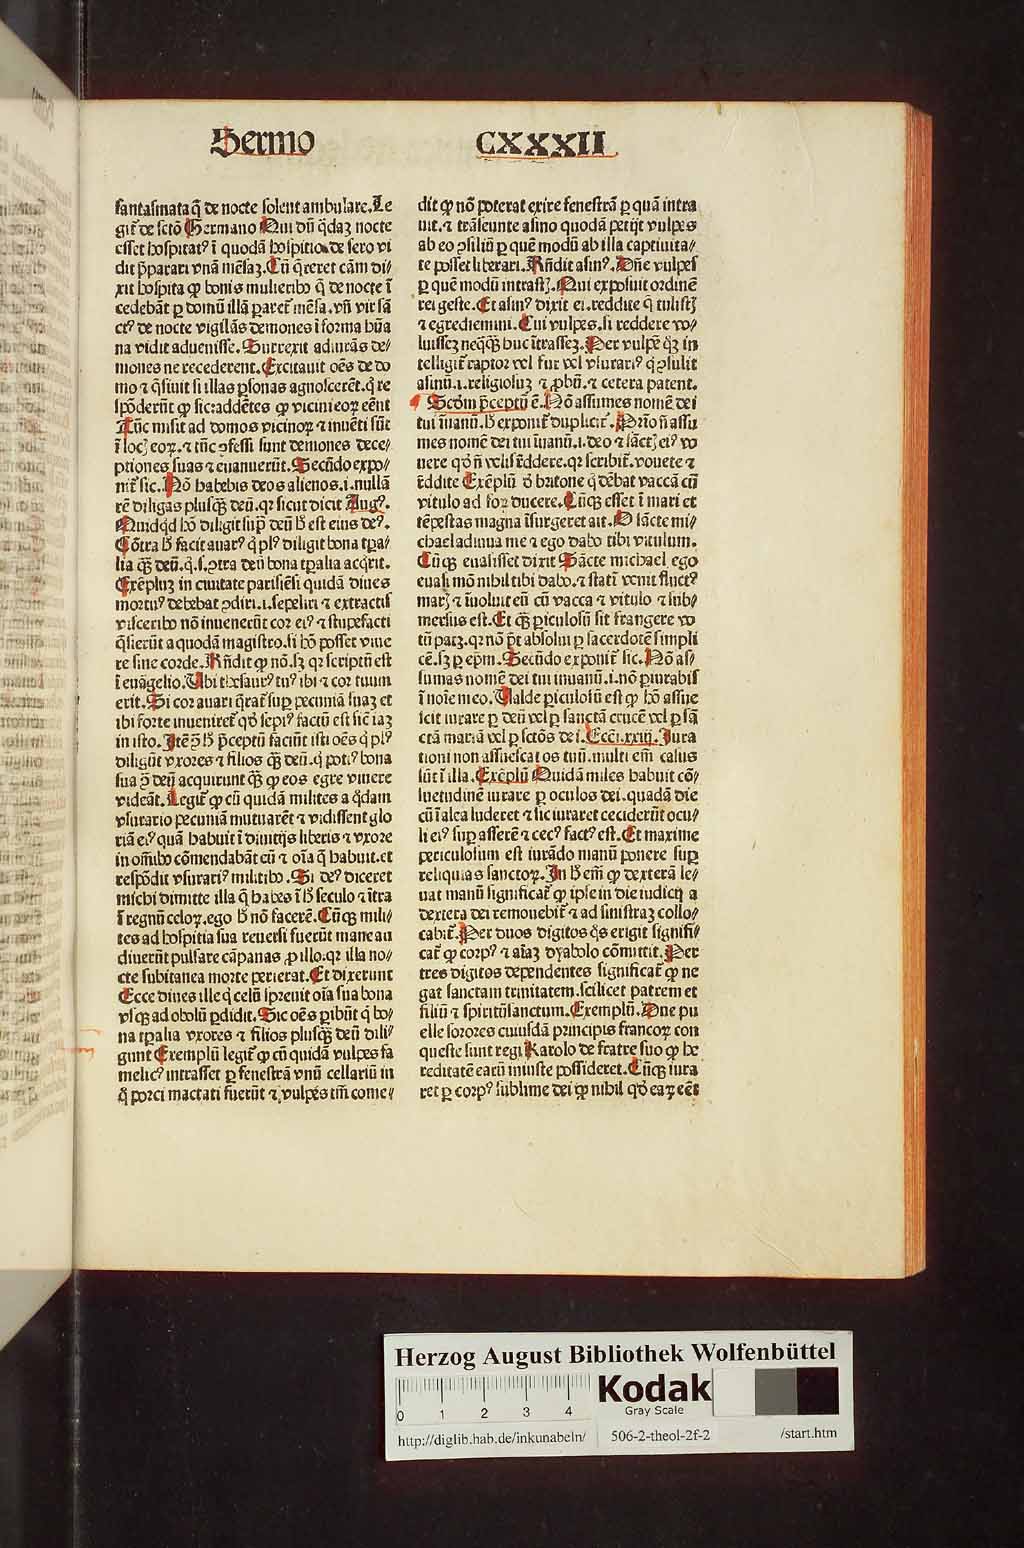 Sermo CXXXII
fantasmata q̃ de nocte solent ambulare. Le
git̃ de scto Germano Qui dũ q̃daz nocte
esset hospitatꝰ ĩ quodã hospitio de sero vi
dit p̃parari vnã mẽsaz. Cũ q̃reret cãm di⸗
xit hospita ꝙ bonis mulieribꝰ q̃ de nocte ĩ
cedebãt ꝑ domũ illã paret̃ mẽsa. vñ vir sã
ctꝰ de nocte vigilãs demones ĩ forma hũa
na vidit aduenisse. Surrexit adiurãs de⸗
mones ne recederent. Excitauit oẽs de do
mo ⁊ q̃siuit si illas ꝑsonas agnoscerẽt. q̃ re
spõderũt ꝙ sic: addẽtes ꝙ vicini eoꝝ eẽnt
Tũc misit ad domos vicinoꝝ ⁊ inuẽti sũt
ĩ locꝭ eoꝝ. ⁊ tũc ꝯfessi sunt demones dece⸗
ptiones suas ⁊ euanuerũt. Secũdo expo⸗
nit̃ sic. Nõ habebis deos alienos .i. nullã
rẽ diligas plusq̃ꝫ deũ. qꝛ sicut dicit Augꝰ.
Quidq̃d hõ diligit suꝑ deũ h̃ est eius deꝰ.
Cõtra h̃ facit auarꝰ q̇ plꝰ diligit bona tꝑa⸗
lia q̃ꝫ deũ. q̇ .s. ꝯtra deũ bona tꝑalia acq̃rit.
Exẽpluꝫ in ciuitate parisiẽsi quidã diues
mortuꝰ debebat ꝯdiri .i. sepeliri ⁊ extractis
visceribꝰ nõ inuenerũt cor eiꝰ ⁊ stupefacti
q̃sierũt a quodã magistro. si hõ posset viue
re sine corde. Rñdit ꝙ nõ. sꝫ qꝛ scriptũ est
ĩ euãgelio. Ubi thesaurꝰ tuꝰ ibi ⁊ cor tuum
erit. Si cor auari q̃rat̃ suꝑ pecuniã suaꝫ et
ibi forte inueniret̃ qõ sepiꝰ factũ est sic iaꝫ
in isto. Itẽ ꝯ h̃ p̃ceptũ faciũt isti oẽs q̇ plꝰ
diligũt vxores ⁊ filios q̃ꝫ deũ. q̇ potiꝰ bona
sua ꝯ deũ acquirunt q̃ꝫ ꝙ eos egre viuere
videãt. Legit̃ ꝙ cũ quidã milites a q̃dam
vsurario pecuniã mutuarẽt ⁊ vidissent glo
riã eiꝰ quã habuit ĩ diuitijs liberis ⁊ vxore
in om̃ibꝰ cõmendabãt eũ ⁊ oĩa q̃ habuit. et
respõdit vsurariꝰ militibꝰ. Si deꝰ diceret
michi dimitte illa q̃ habes ĩ h̃ seculo ⁊ ĩtra
ĩ regnũ celoꝝ. ego h̃ nõ facerẽ. Cũqꝫ mili⸗
tes ad hospitia sua reuersi fuerũt mane au
diuerũt pulsare cãpanas ꝓ illo. qꝛ illa no⸗
cte subitanea morte perierat. Et dixerunt
Ecce diues ille q̇ celũ spreuit oĩa sua bona
vsqꝫ ad obolũ ꝑdidit. Sic oẽs ꝑibũt q̇ bo⸗
na tꝑalia vxores ⁊ filios plusq̃ꝫ deũ dili⸗
gunt Exemplũ legit̃ ꝙ cũ quidã vulpes fa
melicꝰ intrasset ꝑ fenestrã vnũ cellariũ in
q̊ porci mactati fuerũt ⁊ vulpes tm̃ come⸗
dit ꝙ nõ poterat exire fenestrã ꝑ quã intra
uit. ⁊ trãseunte asino quodã petijt vulpes
ab eo ꝯsiliũ ꝑ quẽ modũ ab illa captiuita⸗
te posset liberari. Rñdit asinꝰ. Dñe vulpes
ꝑ quẽ modũ intrastꝭ. Qui exposuit ordinẽ
rei geste. Et asinꝰ dixit ei. reddite q̃ tulistꝭ
⁊ egrediemini. Cui vulpes. si reddere vo⸗
luissem neq̃qꝫ huc ĩtrassez. Per vulpẽ q̃ꝫ in
telligit̃ raptor vel fur vel vsurariꝰ q̇ ꝯsulit
asinũ .i. religiosuꝫ ⁊ p̱bũ. ⁊ cetera patent.
Scḋm p̃ceptũ ẽ. Nõ assumes nomẽ dei
tui ĩuanũ. h̃ exponit̃ duplicit̃. Prĩo ñ assu
mes nomẽ dei tui ĩuanũ .i. deo ⁊ sãctꝭ eiꝰ vo
uere qõ ñ velis r̃ddere. qꝛ scribit̃. vouete ⁊
r̃ddite Exẽplũ d̃ britone q̇ dẽbat vaccã cũ
vitulo ad foꝝ ducere. Cũqꝫ esset ĩ mari et
tẽpestas magna ĩsurgeret ait. O sãcte mi⸗
chael adiuua me ⁊ ego dabo tibi vitulum.
Cũqꝫ euasisset dixit Sãcte michael ego
euasi mõ nihil tibi dabo. ⁊ statĩ venit fluctꝰ
marꝭ ⁊ ĩuoluit eũ cũ vacca ⁊ vitulo ⁊ sub⸗
mersus est. Et q̃ꝫ ꝑiculosũ sit frangere vo
tũ patꝫ. qꝛ nõ p̃t absolui ꝑ sacerdotẽ simpli
cẽ. sꝫ ꝑ ep̃m. Secũdo exponit̃ sic. Nõ as⸗
sumas nomẽ dei tui inuanũ .i. nõ ꝑiurabis
ĩ noĩe meo. Valde ꝑiculosũ est ꝙ hõ assue
scit iurare ꝑ deũ vel ꝑ sanctã crucẽ vel ꝑ sã
ctã mariã vel ꝑ sctõs dei. Ecci. xxiij. Iura
tioni non assuescat os tuũ. multi em̃ casus
sũt ĩ illa. Exẽplũ Quidã miles habuit cõ⸗
suetudinẽ iurare ꝑ oculos dei. quadã die
cũ ĩ alea luderet ⁊ sic iuraret ceciderũt ocu⸗
li eiꝰ suꝑ asserẽ ⁊ cecꝰ factꝰ est. Et maxime
periculosum est iurãdo manũ ponere suꝑ
reliquias sanctoꝝ. In h̃ em̃ ꝙ dexterã le⸗
uat manũ significat̃ ꝙ ipse in die iudicij a
dextera dei remouebit̃ ⁊ ad sinistraꝫ collo⸗
cabit̃. Per duos digitos q̃s erigit signifi⸗
cat̃ ꝙ corpꝰ ⁊ aĩaꝫ dyabolo cõmittit. Per
tres digitos dependentes significat̃ ꝙ ne
gat sanctam trinitatem. scilicet patrem et
filiũ ⁊ spiritũsanctum. Exemplũ. Due pu
elle sorores cuiusdã principis francoꝝ con
queste sunt regi Karolo de fratre suo ꝙ he
reditatẽ earũ iniuste possideret. Cũqꝫ iura
ret ꝑ corpꝰ sublime dei ꝙ nihil qõ eaꝝ eẽt
Herzog August Bibliothek Wolfenbüttel
0 1 2 3 4
Kodak
Gray Scale
http://diglib.hab.de/inkunabeln/ 506-2-theol-2f-2 /start.htm